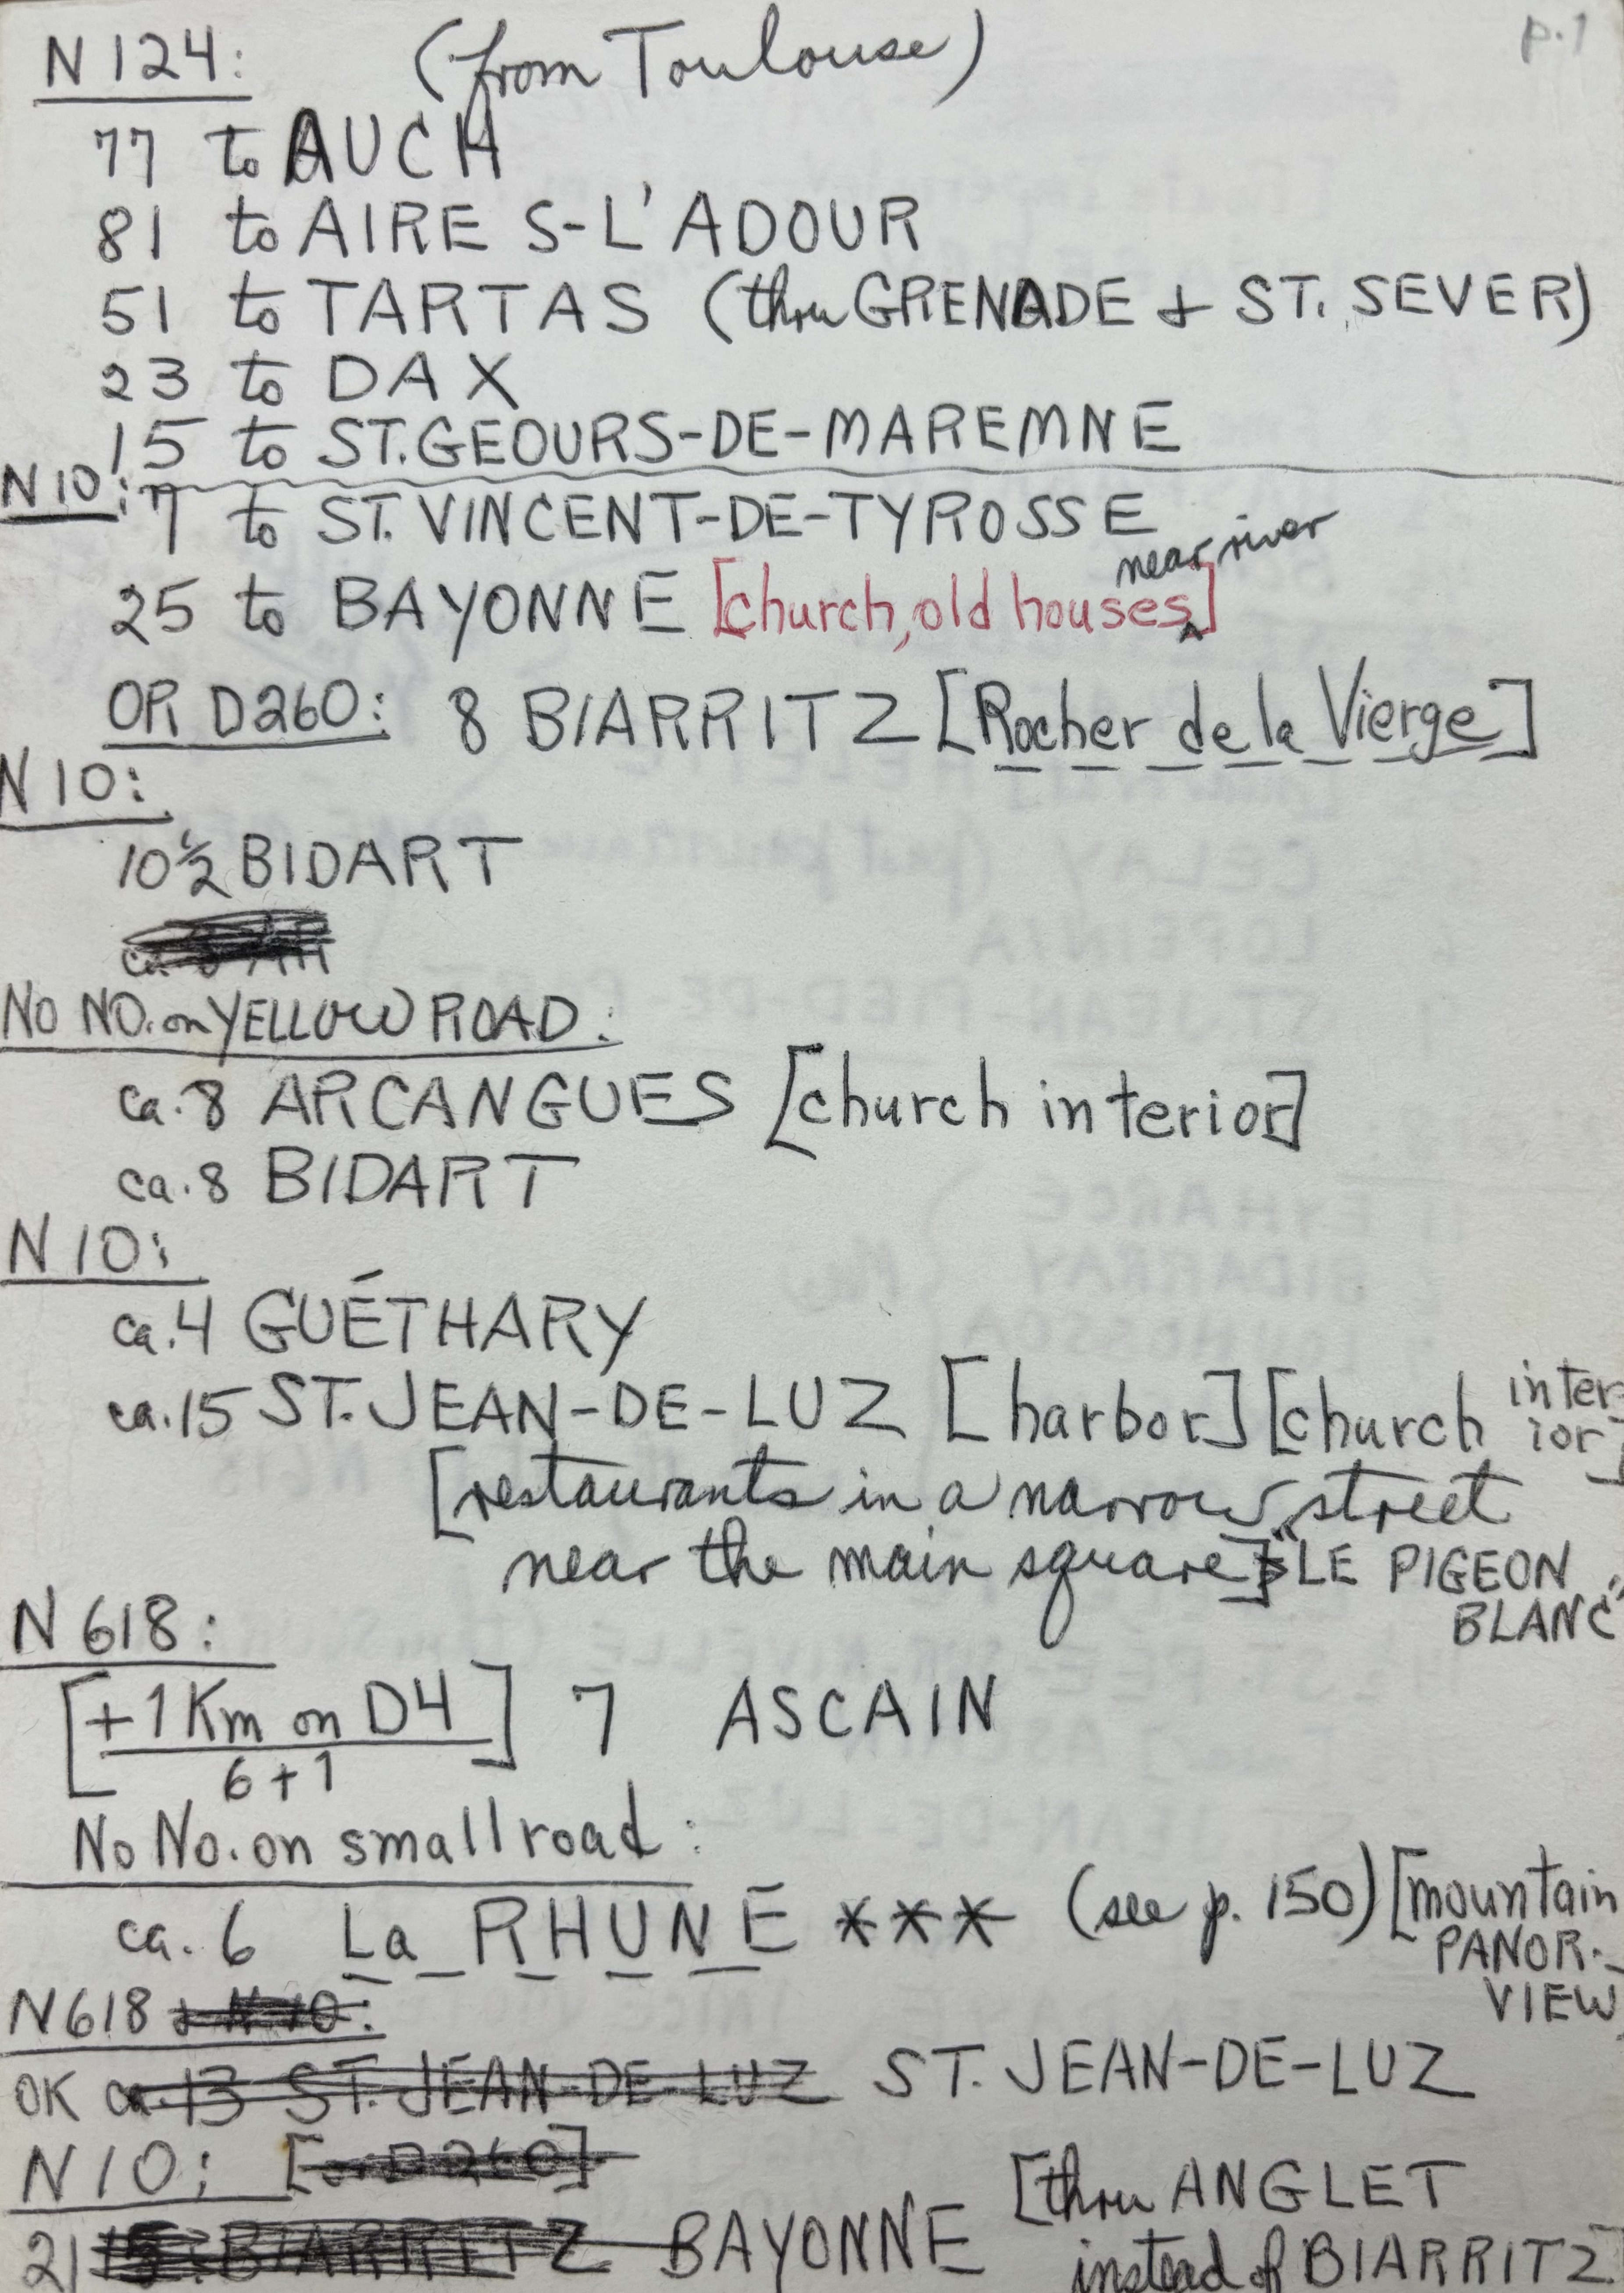 p.1
N 124: (from Toulouse)
77 to AUCH
81 to AIRE S-L'ADOUR
51 to TARTAS (thru GRENADE + ST. SEVER)
23 to DAX
15 to ST. GEOURS-DE-MAREMNE
N 10:
7 to ST. VINCENT-DE-TYROSSE
25 to BAYONNE [church, old houses near river]
OR D260: 8 BIARRITZ [Rocher de la Vierge]
N 10:
10½ BIDART
NO NO. on YELLOW ROAD:
ca. 8 ARCANGUES [church interior]
ca. 8 BIDART
N 10:
ca. 4 GUÉTHARY
ca. 15 ST. JEAN-DE-LUZ [harbor] [church interior]
[restaurants in a narrow street
near the main square] "LE PIGEON
BLANC"
N 618:
[+1 Km on D4] 7 ASCAIN
6+1
No No. on small road:
ca. 6 La RHUNE *** (see p. 150) [mountain
PANOR.
VIEW
N618 + N 10:
OK ca. 13 ST. JEAN-DE-LUZ ST. JEAN-DE-LUZ
N 10: [or D260]
21 BIARRITZ BAYONNE [thru ANGLET
instead of BIARRITZ]